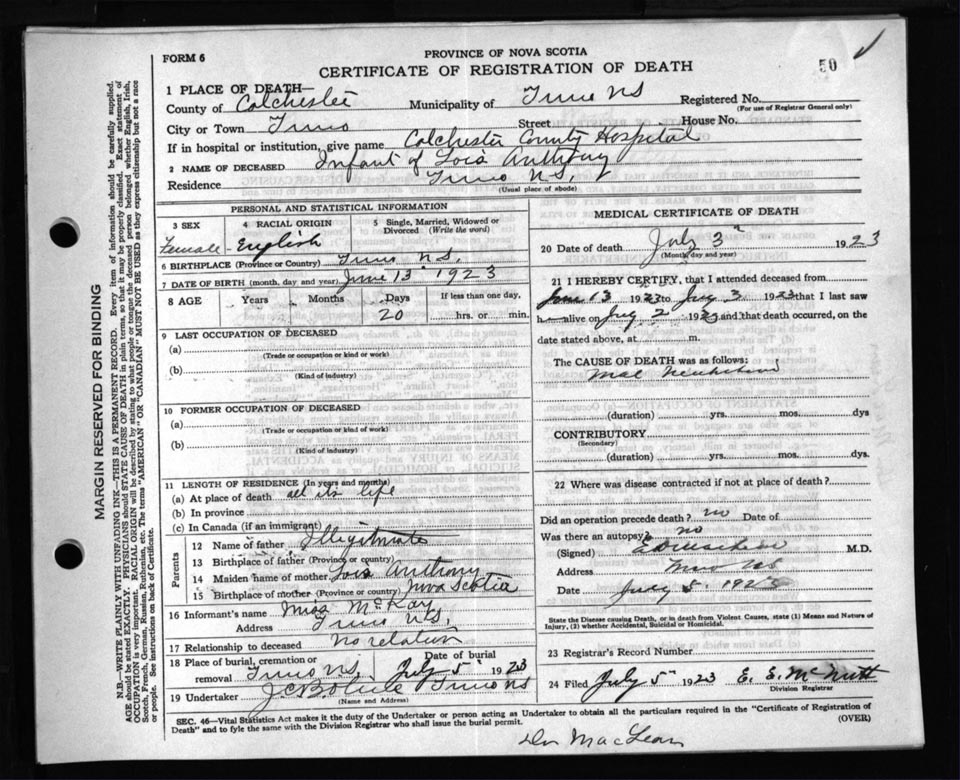 FORM 6
PROVINCE OF NOVA SCOTIA
50
CERTIFICATE OF REGISTRATION OF DEATH
1 PLACE OF DEATH—
County of Colchester Municipality of Truro N.S Registered No.
(For use of Registrar General only)
City or Town Truro Street House No.
If in hospital or institution, give name Colchester County Hospital
2 NAME OF DECEASED Infant of Lois Anthony
Residence Truro N.S.
(Usual place of abode)
PERSONAL AND STATISTICAL INFORMATION
3 SEX 4 RACIAL ORIGIN 5 Single, Married, Widowed or Divorced (Write the word)
Female - English
6 BIRTHPLACE (Province or Country) Truro N.S.
7 DATE OF BIRTH (month, day, and year) June 13 1923
8 AGE Years Months Days If less than one day,
20 hrs. or min.
9 LAST OCCUPATION OF DECEASED
(a)
(Trade or occupation or kind of work)
(b)
(Kind of industry)
10 FORMER OCCUPATION OF DECEASED
(a)
(Trade or occupation or kind of work)
(b)
(Kind of industry)
11 LENGTH OF RESIDENCE (In years and months)
(a) At place of death all its life
(b) In province
(c) In Canada (if an immigrant)
Parents
12 Name of father Illegitimate
13 Birthplace of father (Province or country)
14 Maiden name of mother Lois Anthony
15 Birthplace of mother (Province or country) Nova Scotia
16 Informant's name Miss McKay
Address Truro N.S.
17 Relationship to deceased no relation
18 Place of burial, cremation or removal Truro N.S. Date of burial July 5 1923
19 Undertaker Truro NS
(Name and Address)
MEDICAL CERTIFICATE OF DEATH
20 Date of death July 3 1923
(Month, day and year)
21 I HEREBY CERTIFY, that I attended deceased from
June 13 1923 to July 3 1923 that I last saw
h alive on July 2 1923 and that death occurred, on
date stated above, at m.
The CAUSE OF DEATH was as follows:
Mal
(duration) yrs. mos. dys
CONTRIBUTORY
(Secondary)
(duration) yrs. mos. dys.
22 Where was disease contracted if not at place of death?
Did an operation precede death? no Date of
Was there an autopsy? no
(Signed) M.D.
Address Truro NS
Date July 5. 1923
State the Disease causing Death, or in death from Violent Causes, state (1) Means and Nature of Injury, (2) whether Accidental, Suicidal or Homicidal.
23 Registrar's Record Number
24 Filed July 5 1923 E. S. McNutt
Division Registrar
SEC. 46—Vital Statistics Act makes it the duty of the Undertaker or person acting as Undertaker to obtain all the particulars required in the "Certificate of Registration of
Death" and to fyle the same with the Division Registrar who shall issue the burial permit.
(OVER)
Dr MacLean
MARGIN RESERVED FOR BINDING
N.B.—WRITE PLAINLY WITH UNFADING INK—THIS IS A PERMANENT RECORD. Every item of information should be carefully supplied.
AGE should be stated EXACTLY. PHYSICIANS should STATE CAUSE OF DEATH in plain terms, so that it may be properly classified. Exact statement of
OCCUPATION is very important. RACIAL ORIGIN will be described by stating to what people or tongue the deceased person belonged whether English, Irish,
Scotch, French, German, Russian, Ruthenian, etc. The terms "AMERICAN" OR "CANADIAN" MUST NOT BE USED as they express citizenship but not a race
or people. See instructions on back of Certificate.